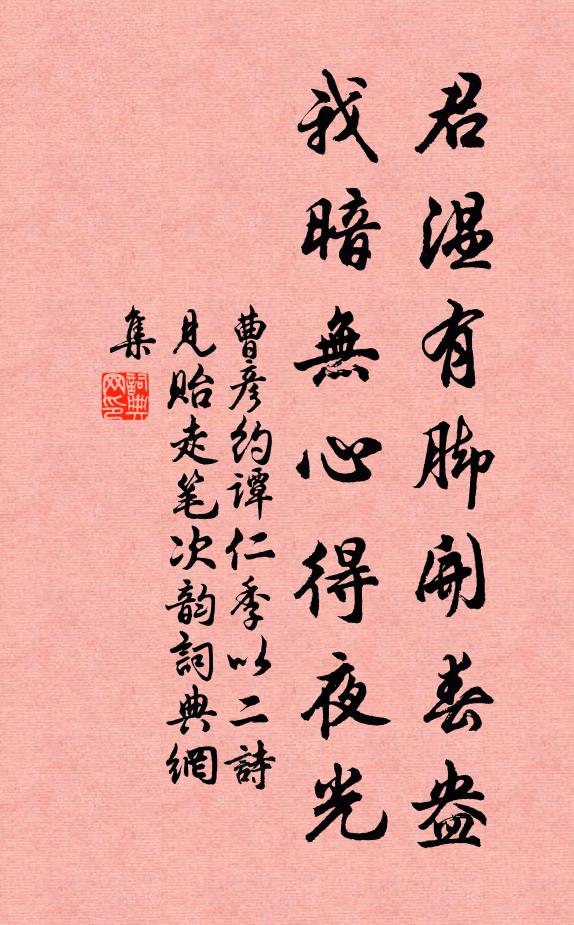 君温有脚開春盎
我暗無心得夜光
曹彦約譚仁季以二詩
見貽走笔次韵詞典網
集
詞典
网印